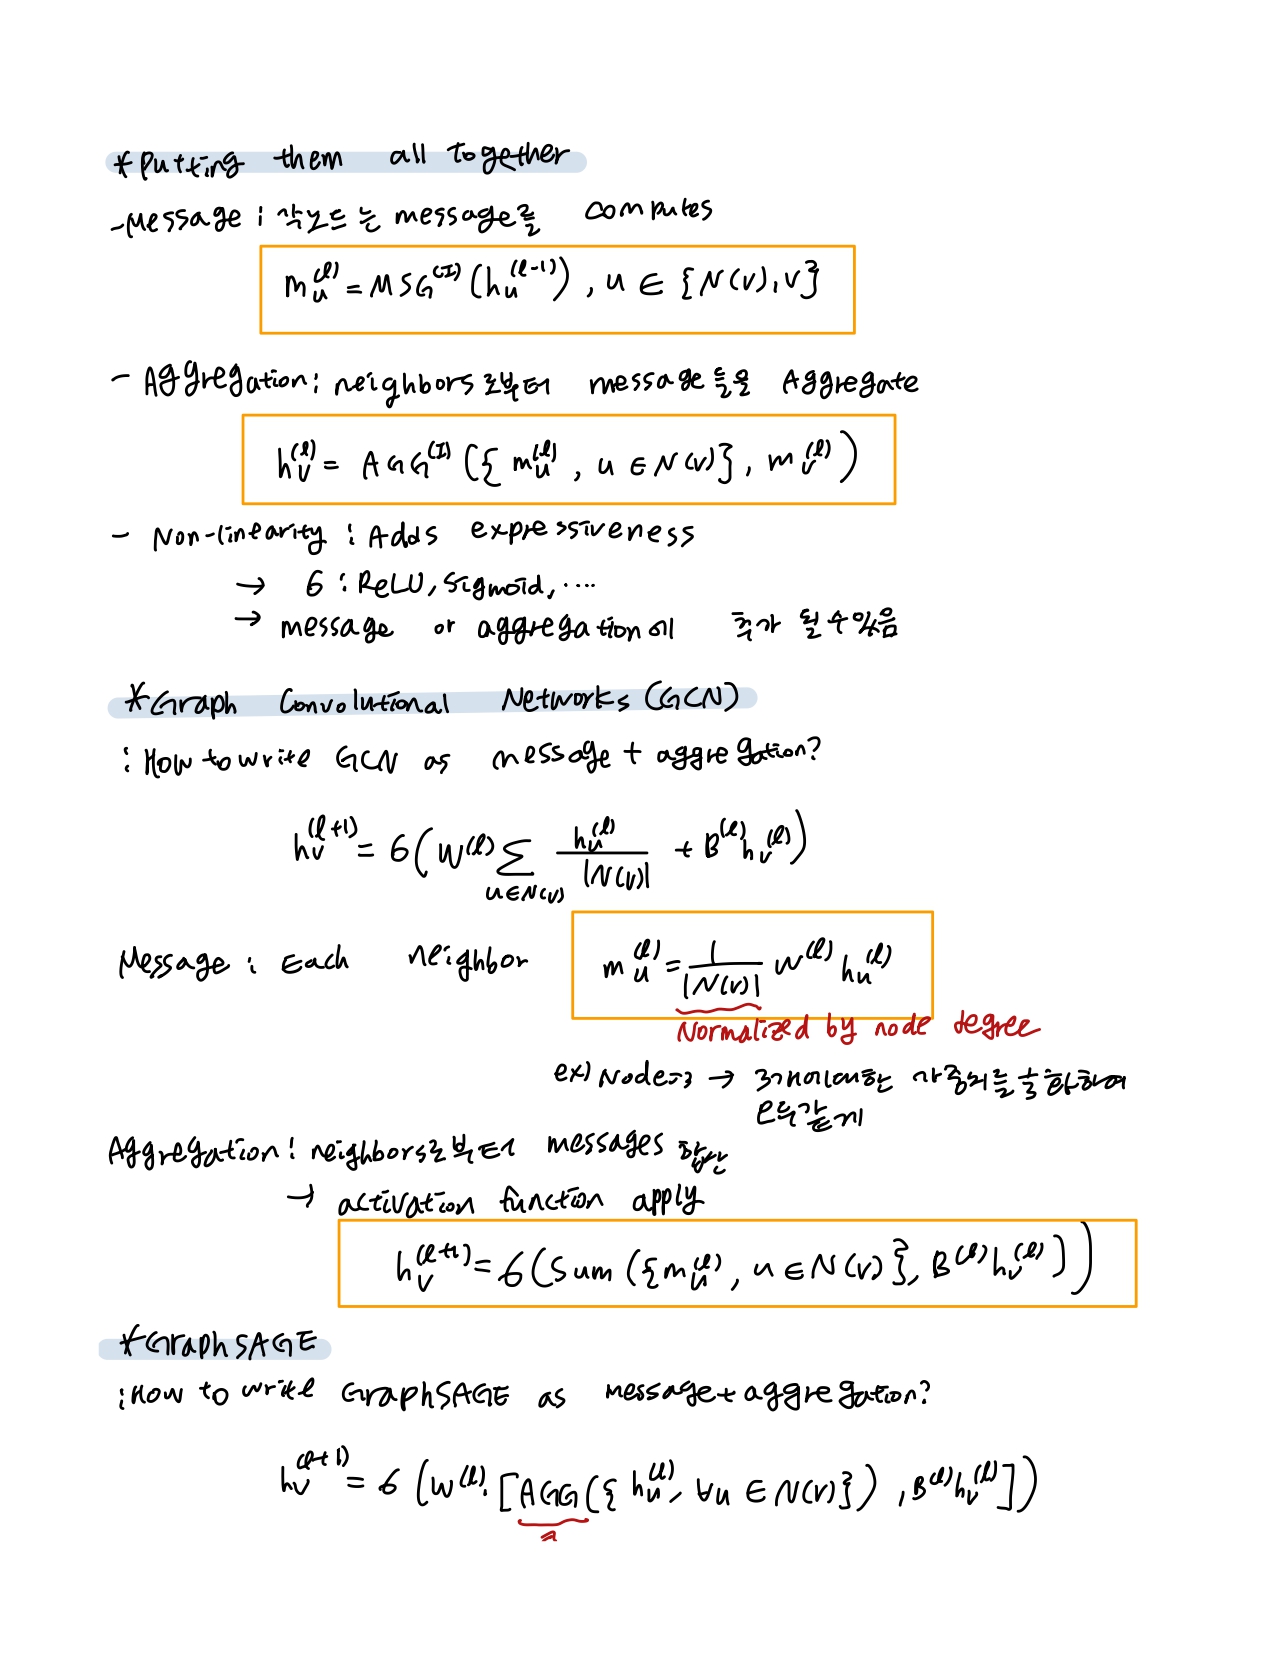 *Putting them all together
-Message : 각노드는 message를 computes
m_u^(l) = MSG^(I)(h_u^(l-1)), u ∈ {N(v), v}
- Aggregation : neighbors로부터 message들을 Aggregate
h_v^(l) = AGG^(I)({m_u^(l), u ∈ N(v)}, m_v^(l))
- Non-linearity : Adds expressiveness
→ σ : ReLU, Sigmoid, ....
→ message or aggregation에 추가 될 수 있음
*Graph Convolutional Networks (GCN)
: How to write GCN as message + aggregation?
h_v^(l+1) = σ(W^(l) Σ_{u∈N(v)} h_u^(l) / |N(v)| + B^(l) h_v^(l))
Message : Each neighbor m_u^(l) = 1/|N(v)| W^(l) h_u^(l)
Normalized by node degree
ex) Node=3 → 3개에대한 가중치를 출합하여
모두같게
Aggregation : neighbors로부터 messages 합산
→ activation function apply
h_v^(l+1) = σ(Sum({m_u^(l), u ∈ N(v)}, B^(l) h_v^(l)]))
*GraphSAGE
: How to write GraphSAGE as message + aggregation?
h_v^(l+1) = σ(W^(l)·[AGG({h_u^(l), ∀u ∈ N(v)}), B^(l) h_v^(l)])